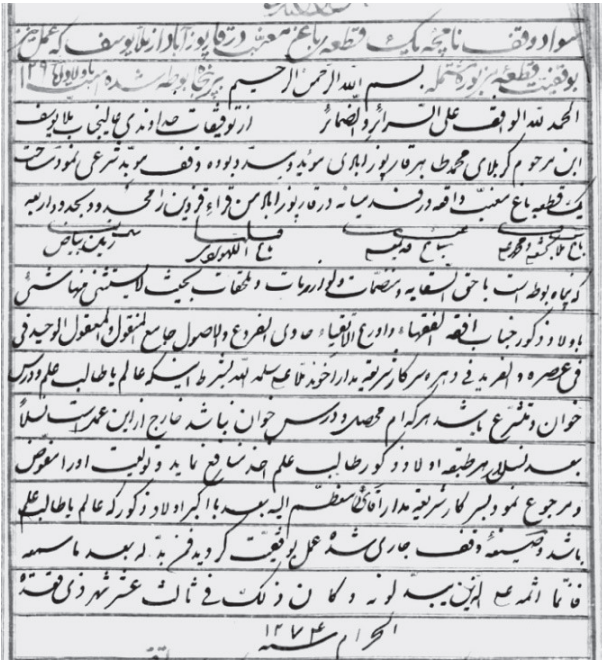 سواد وقف نامچه یک قطعه باغ معنب در قاپوزآباد از ملا یوسف که عمل بر
بوقفیت قطعه
بسم الله الرحمن الرحیم
الحمد لله الواقف علی السرائر والضمائر از توفیقات خداوندی عالیجناب ملا یوسف
ابن مرحوم کربلای محمد طاهر قارپوزابادی موئید و مسدد بوده وقف موبد شرعی نمود
یک قطعه باغ معنب واقعه در قارپوزاباد من قراء قزوین را محدود بحدود اربعه
باغ باغ باغ زمین بیاض
که پنجاه بوطه است با حق السقایه و منضمات و لوازمات و ملحقات بحیث لا یستثنی منها شئ
باولاد ذکور جناب افقه الفقهاء و اورع الاتقیاء حاوی الفروع والاصول جامع المنقول والمعقول الوحید فی
فی عصره و الفرید فی دهره سرکار شریعتمدار آخوند ملا سلمه الله بشرط اینکه عالم یا طالب علم و درس
خوان و متشرع باشد هر کدام محصل و درس خوان نباشد خارج از این عمل است نسلا
بعد نسل هر طبقه اولاد ذکور طالب علم اخذ منافع نماید و تولیت او را مفوض
و مرجوع نمود بسرکار شریعتمدار آقای معظم الیه بعد با اکبر اولاد ذکور که عالم یا طالب علم
باشد و صیغه وقف جاری شده عمل بوقفیت گردید فمن بدله بعد ما سمعه
فانما اثمه علی الذین یبدلونه و کان ذلک فی ثالث عشر شهر ذی قعدة
الحرام سنه ۱۲۷۴